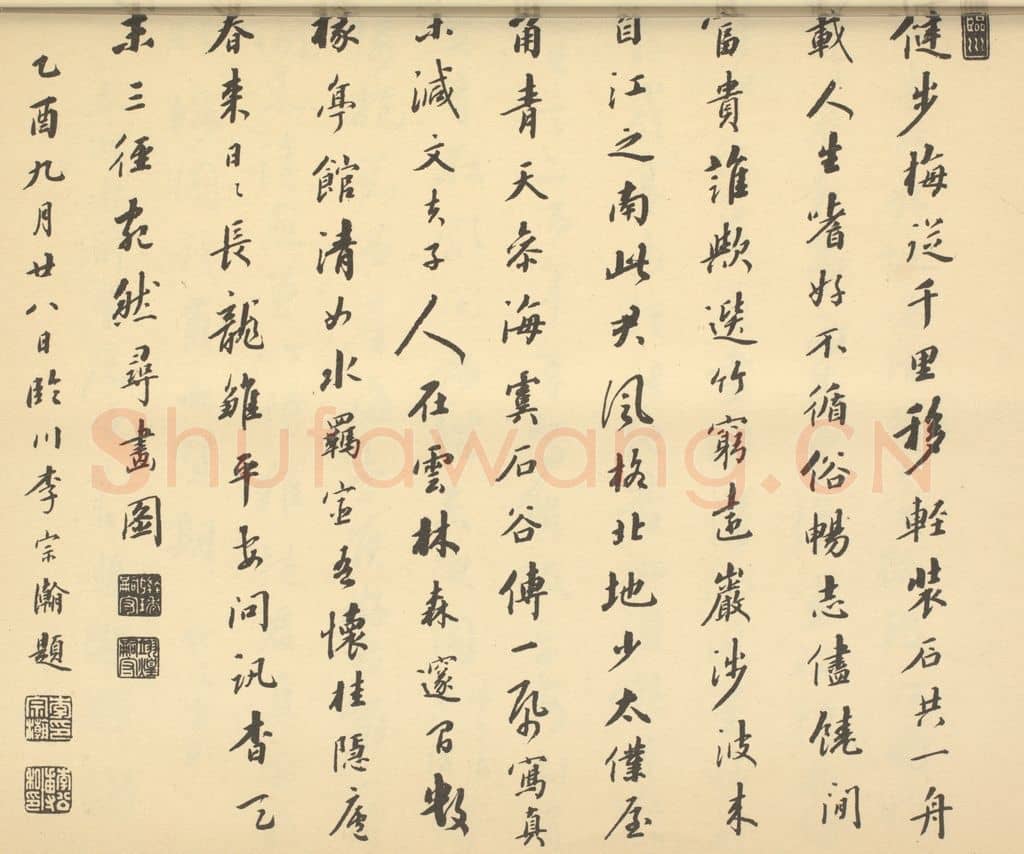 臨川
健步梅從千里移輕裝石共一舟
載人生嗜好不循俗暢志儘饒閒
富貴誰歟選竹窮遠巖涉波來
自江之南此君風格北地少太僕屋
角青天參海虞石谷傳一寫真
未減文夫子人在雲林森邃間數
椽亭館清如水羈宦吾懷桂隱廬
春來日〻長龍雛平安問訊杳天
末三徑宛然尋畫圖
乙酉九月廿八日臨川李宗瀚題
Shufawang.CN